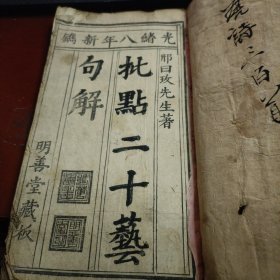 光緒八年新鐫
邢曰玫先生著
批點二十藝
句解
明善堂藏板
詩三百首